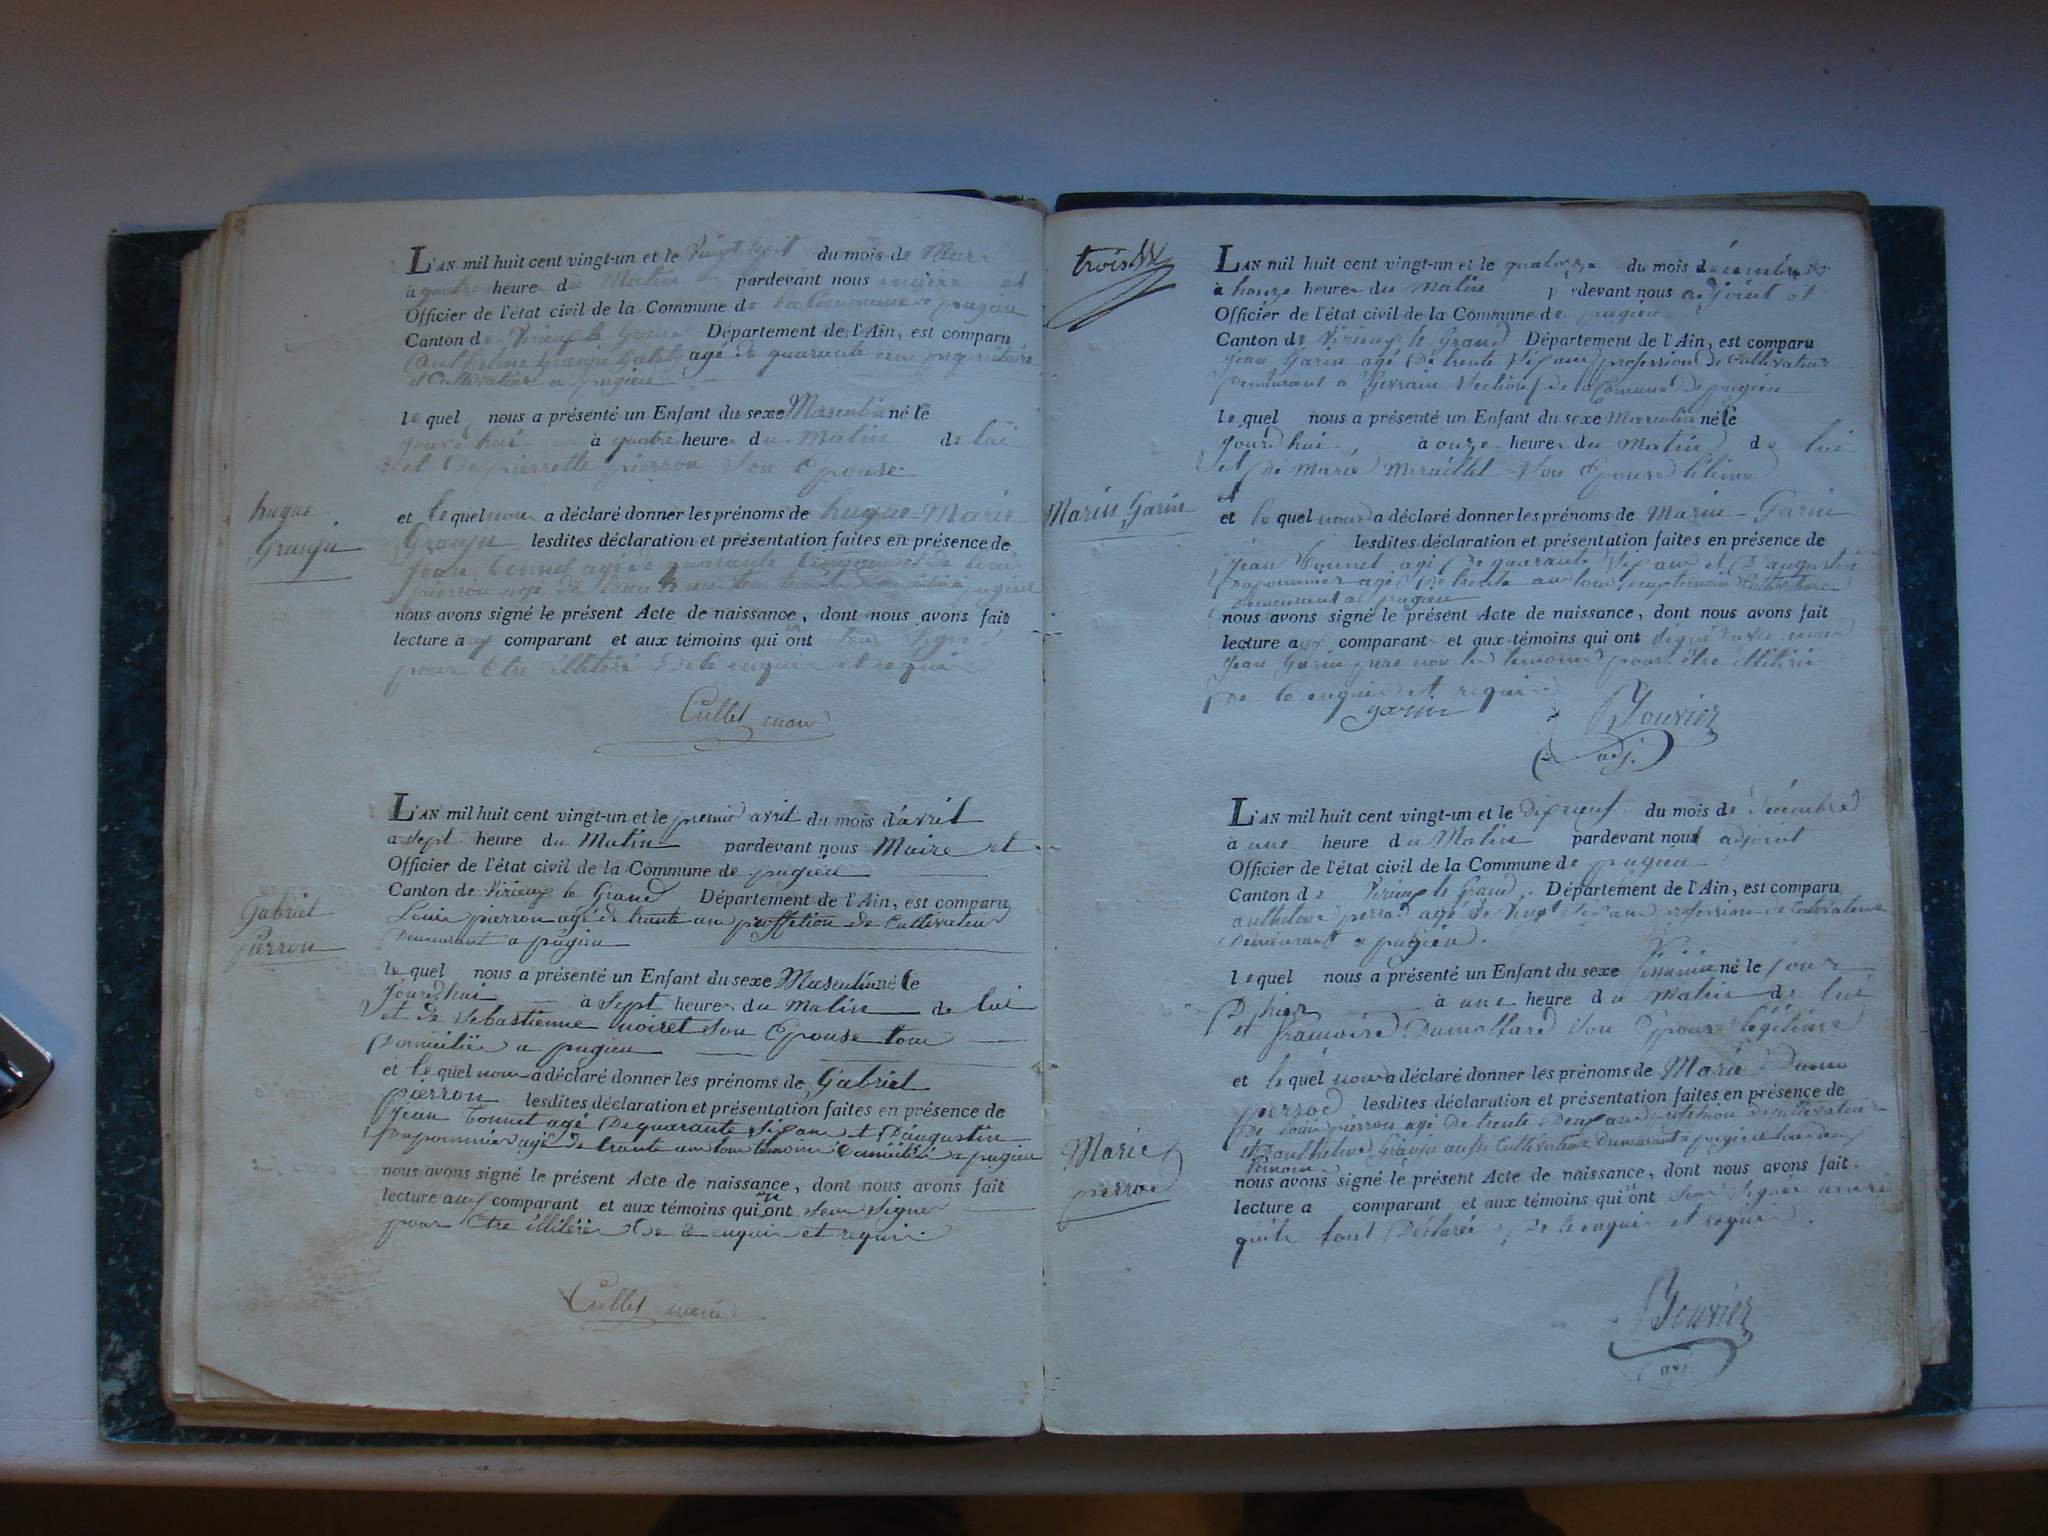 L'AN mil huit cent vingt-un et le Vingt sept du mois de Mars
à quatre heures du Matin pardevant nous maire et
Officier de l'état civil de la Commune de la Commune de pugieu
Canton de Virieux le Grand Département de l'Ain, est comparu
Anthelme Granju agé de quarante ans proprietaire
et Cultivateur a pugieu
le quel nous a présenté un Enfant du sexe Masculin né le
jourd'hui à quatre heures du Matin de lui
et de pierrette pierron son Epouse
hugue
Granju
et le quel nous a déclaré donner les prénoms de hugue Marie
Granju lesdites déclaration et présentation faites en présence de
Jean Tonnet agé de quarante
pierron agé de
nous avons signé le présent Acte de naissance, dont nous avons fait
lecture aux comparant et aux témoins qui n'ont seu signé
pour être illitéré de ce enquis et requis
Cullet maire
L'AN mil huit cent vingt-un et le premier avril du mois d'avril
a sept heure du Matin pardevant nous Maire et
Officier de l'état civil de la Commune de pugieu
Canton de Virieux le Grand Département de l'Ain, est comparu
Louis pierron agé de trante ans proffetion de Cultivateur
Demeurant a pugieu
Gabriel
Pierron
le quel nous a présenté un Enfant du sexe Masculin né le
jourd'hui à Sept heures du Matin de lui
et de Sebastienne noiret son Epouse tous
Domiciliés a pugieu
et le quel nous a déclaré donner les prénoms de Gabriel
pierron lesdites déclaration et présentation faites en présence de
Jean Tonnet agé De quarante Six ans et D'augustin
papponnier agé de trante ans tous témoins Domiciliés a pugieu
nous avons signé le présent Acte de naissance, dont nous avons fait
lecture aux comparant et aux témoins qui n'ont seu Signer
pour Etre illitérés De ce enquis et requis.
Cullet maire
trois
L'AN mil huit cent vingt-un et le quatorze du mois décembre
à honze heures du matin pardevant nous adjoint et
Officier de l'état civil de la Commune de pugieu
Canton de Virieux le Grand Département de l'Ain, est comparu
Jean Garin agé De trente Six ans profession de Cultivateur
Demeurant a Section de la Commune de pugieu
le quel nous a présenté un Enfant du sexe Masculin né le
jourd'hui à onze heures du Matin de lui
et de Marie Son Epouse létime
Marin Garin
et le quel nous a déclaré donner les prénoms de Marin Garin
lesdites déclaration et présentation faites en présence de
jean Tonnet agé De quarante Six ans et D'augustin
papponnier agé De trente ans tous Cultivateurs
Demeurant a pugieu
nous avons signé le présent Acte de naissance, dont nous avons fait
lecture aux comparant et aux témoins qui ont signé avec nous
Jean Garin pere non les temoins pour être illitérés
De ce enquis et requis
garin
Bouvier
adj.
L'AN mil huit cent vingt-un et le Dix neuf du mois de Décembre
à une heure du Matin pardevant nous adjoint
Officier de l'état civil de la Commune de pugieu
Canton de Virieux le Grand. Département de l'Ain, est comparu
anthelme perrod agé de Vingt Six ans profession de Cultivateur
Demeurant a pugieu.
le quel nous a présenté un Enfant du sexe Féminin né le jour
D'hier à une heure du Matin de lui
et Françoise Dumollard son Epouse légitime
et le quel nous a déclaré donner les prénoms de Marie
perrod lesdites déclaration et présentation faites en présence de
De Louis pierron agé De trente Deux ans profession de Cultivateur
et D'anthelme Granju aussi Cultivateur Demeurant a pugieu tous deux
Marie
perrod
témoins
nous avons signé le présent Acte de naissance, dont nous avons fait
lecture a comparant et aux témoins qui n'ont seu Signer
qu'ils l'ont Déclaré De ce enquis et requis.
Bouvier
adj.